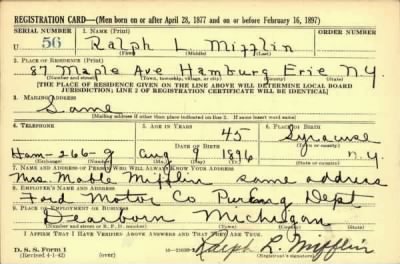 REGISTRATION CARD—(Men born on or after April 28, 1877 and on or before February 16, 1897)
SERIAL NUMBER 1. NAME (Print) ORDER NUMBER
U 56 Ralph L Mifflin
(First) (Middle) (Last)
2. PLACE OF RESIDENCE (Print)
87 Maple Ave Hamburg Erie N.Y.
(Number and street) (Town, township, village, or city) (County) (State)
[THE PLACE OF RESIDENCE GIVEN ON THE LINE ABOVE WILL DETERMINE LOCAL BOARD
JURISDICTION; LINE 2 OF REGISTRATION CERTIFICATE WILL BE IDENTICAL]
3. MAILING ADDRESS
Same
[Mailing address if other than place indicated on line 2. If same insert word same]
4. TELEPHONE 5. AGE IN YEARS 6. PLACE OF BIRTH
45 Syracuse
DATE OF BIRTH (Town or county)
Ham-266-J Aug 8 1896 N.Y.
7. NAME AND ADDRESS OF PERSON WHO WILL ALWAYS KNOW YOUR ADDRESS
Mrs. Mable Mifflin same address
8. EMPLOYER'S NAME AND ADDRESS
Ford Motor Co Dept
9. PLACE OF EMPLOYMENT OR BUSINESS
Dearborn Michigan
(Number and street or R. F. D. number) (Town) (County) (State)
I AFFIRM THAT I HAVE VERIFIED ABOVE ANSWERS AND THAT THEY ARE TRUE.
D. S. S. Form 1
(Revised 4-1-42) (over) Ralph L. Mifflin
(Registrant's signature)